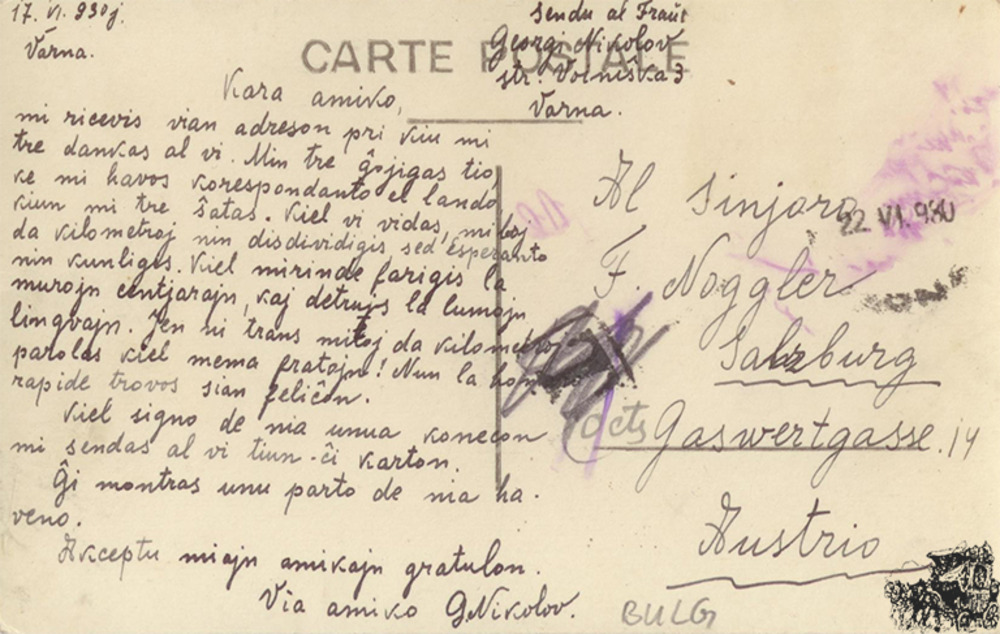 17. VI. 930j.
Varna.
CARTE POSTALE
Sendu al Fraŭt
Georgi Nikolov
str. Volniŝka 3
Varna.
Kara amiko,
mi ricevis vian adreson pri kiu mi
tre dankas al vi. Min tre ĝojigas tio,
ke mi havos korespondanto el lando
kiun mi tre ŝatas. Kiel vi vidas, miloj
da kilometroj nin disdividigis, sed Esperanto
nin kunligas. Kiel mirinde farigis la
murojn centjarajn, kaj detrujs la
lingvajn. Jen ni trans miloj da kilometroj
parolas kiel mema fratojn! Nun la
rapide trovos sian feliĉon.
Kiel signo de nia unua konecon
mi sendas al vi tiun-ĉi karton.
Ĝi montras unu parto de nia ha-
veno.
Akceptu miajn amikajn gratulon.
Via amiko G. Nikolov.
Al Sinjoro
22 VI. 930
F. Noggler
Salzburg
Gaswertgasse. 14
Austrio
BULG